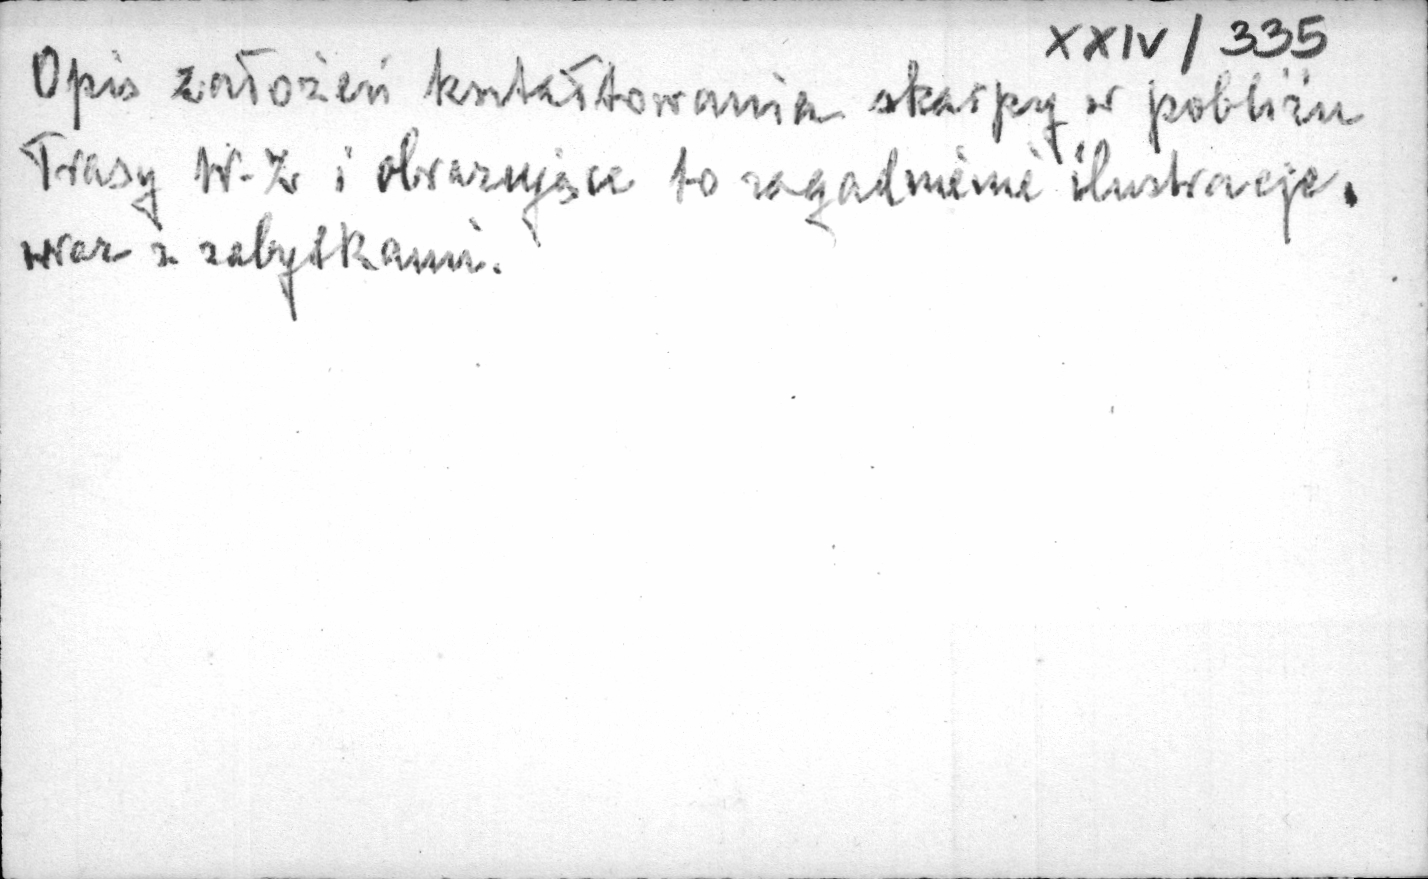 XXIV / 335
Opis założeń kształtowania skarpy w pobliżu
Trasy W-Z i obrazujące to zagadnienie ilustracje.
wraz z zabytkami.